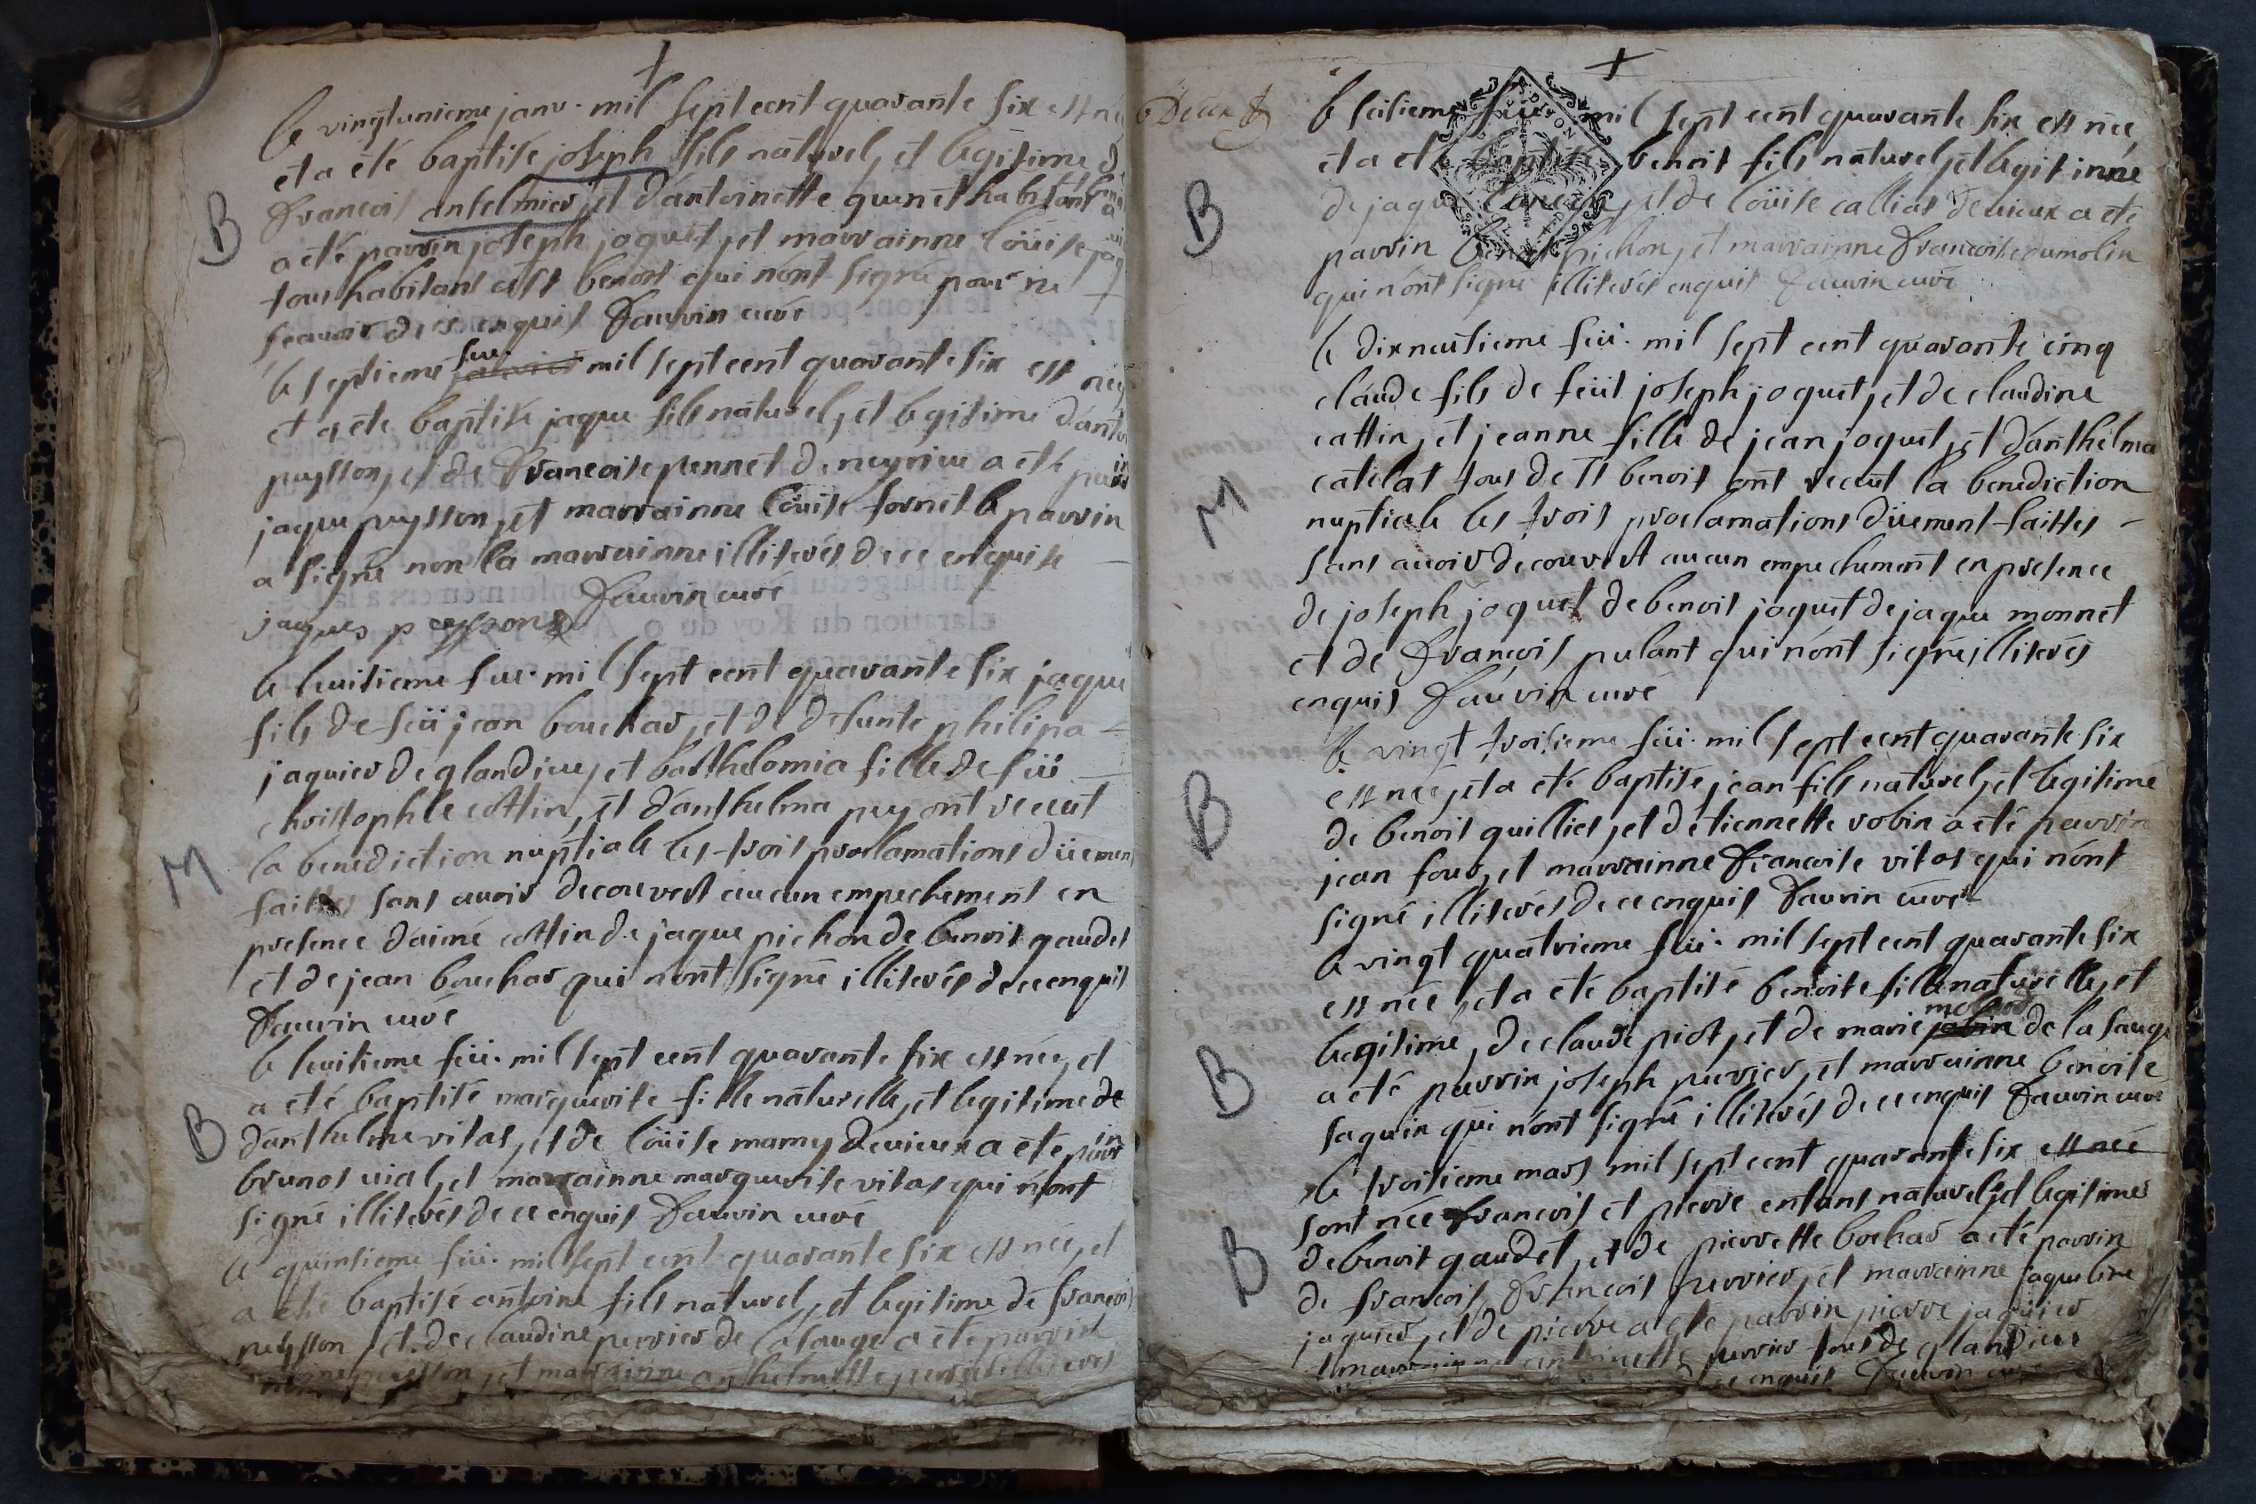 le vingtunieme janv. mil sept cent quarante six est né
et a été baptisé joseph fils naturel, et legitime d
francois antelmier, et d'antoinette quinet habitant
a été parrin joseph joquet, et marrainne loüise
tous habitant a st benoit qui n'ont signé pour ne
scavoir de ce enquis Fauvin curé
B
le septieme fev. mil sept cent quarante six est né
et a été baptisé jaque fils naturel, et legitime d'anto
puysson, et de francoise pennet de neyrieu a été parrin
jaque puysson, et marrainne loüise fornet le parrin
a signé non la marrainne illiterés de ce enquise
Fauvin curé
jaques peysson
le huitieme fev. mil sept cent quarante six jaque
fils de feü jean bouchar, et de defunte philipa
jaquier de glandieu, et barthelomia fille de feü
christophle cottin, et d'anthelma puy ont receut
la benediction nuptiale les trois proclamations düement
faittes sans avoir decouvert aucun empechement en
presence d'aimé cottin de jaque pichon de benoit gaudet
et de jean bouchar qui n'ont signé illiterés de ce enquis
Fauvin curé
M
le huitieme feü. mil sept cent quarante six est née, et
a été baptisé marguerite fille naturelle, et legitime de
d'anthelme vitas, et de loüise mamy de vieux a été parrin
brunot vial, et marrainne marguerite vitas qui n'ont
signé illiterés de ce enquis Fauvin curé
B
le quinsieme feü. mil sept cent quarante six est née, et
a été baptisé antoine fils naturel, et legitime de francois
puysson et de claudine perrier de la sauge a été parrin
puysson, et marrainne anthelmette
+
+
le seisieme mil sept cent quarante six est née
et a été baptisé benoit fils naturel, et legitimé
de jaque et de loüise callias de vieux a été
parrin benoit pichon, et marrainne francoise dumolin
qui n'ont signé illiterés enquis Fauvin curé
B
le dixneufieme feü. mil sept cent quarante cinq
claude fils de feüt joseph joquet, et de claudine
cattin, et jeanne fille de jean joquet, et d'anthelma
catelat tous de st benoit ont receut la benediction
nuptiale les trois proclamations düement faittes
sans avoir decouvert aucun empechement en presence
de joseph joquet de benoit joquet de jaque monnet
et de francois pulant qui n'ont signés illiterés
enquis Fauvin curé
M
le vingt troisieme feü. mil sept cent quarante six
est née, et a été baptisé jean fils naturel, et legitime
de benoit quillier, et d'etiennette robin a été parrin
jean four, et marrainne francoise vitas qui n'ont
signé illiterés de ce enquis Fauvin curé
B
le vingt quatrieme feü. mil sept cent quarante six
est née, et a été baptisé benoite fille naturelle, et
legitime, de claude piot, et de marie de la sauge
a été parrin joseph perrier, et marrainne benoite
jaquin qui n'ont signé illiterés de ce enquis Fauvin curé
B
le troisieme mars mil sept cent quarante six est née
sont née francois et pierre enfans naturels, et legitimes
de benoit gaudet, et de pierrette bochar a été parrin
de francois francois perrier, et marrainne jaqueline
jaquier, et de pierre a été parrin pierre jaquier
et marrainne antoinette perrier tous de glandieu
enquis Fauvin curé
B